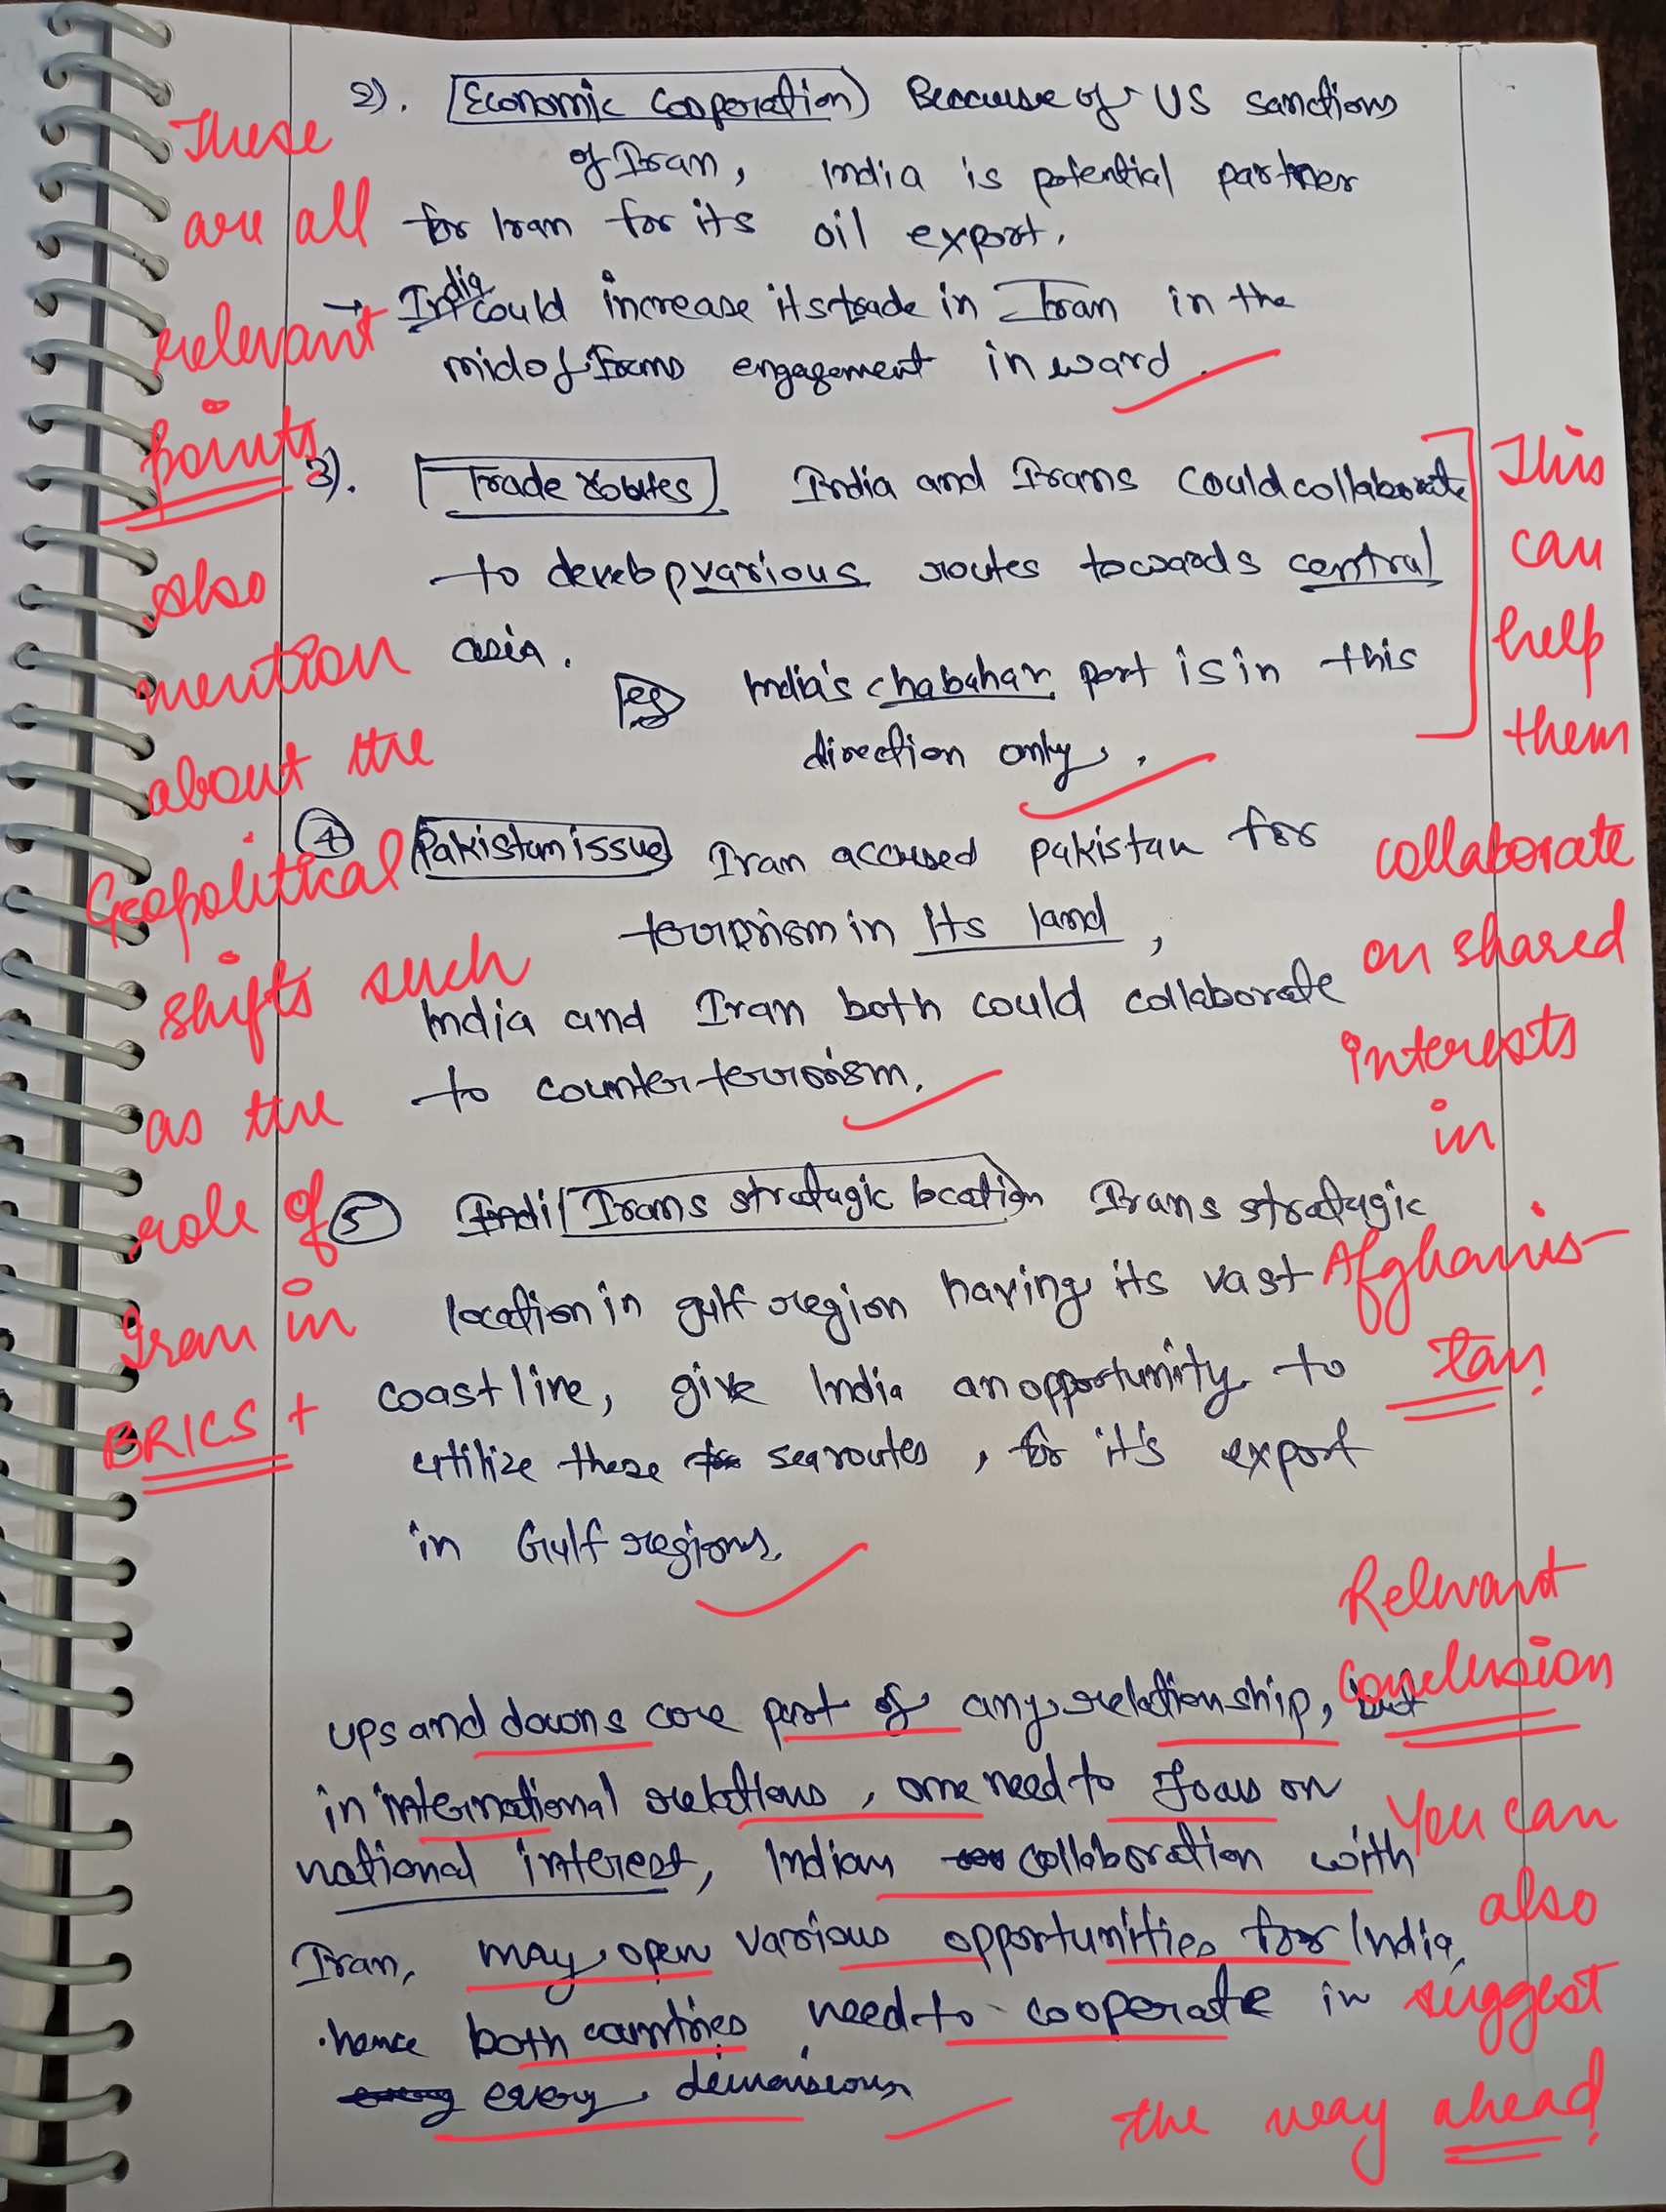 2). Economic Cooperation) Because of US sanctions
of Iran, India is potential partner
for Iran for its oil export.
→ India could increase its trade in Iran in the
mid of Irans engagement in ward.
3). Trade routes India and Irans could collaborate
to develop various routes towards central
asia.
eg India's chabahar port is in this
direction only.
4 Pakistan issue Iran accused pakistan for
terrorism in its land,
India and Iran both could collaborate
to counter terrorism.
5 Indi Irans stratagic location Irans stratagic
location in gulf region having its vast
coastline, give India an opportunity to
utilize these sea routes, for it's export
in Gulf regions.
ups and downs are part of any relationship, but
in international relations, one need to focus on
national interest, Indian collaboration with
Iran, may open various opportunities for India,
hence both countries need to cooperate in
every dimensions
These
are all
relevant
points
Also
mention
about the
Geopolitical
shifts such
as the
role of
Iran in
BRICS +
This
can
help
them
collaborate
on shared
interests
in
Afghanis-
tan
Relevant
conclusion
You can
also
suggest
the way ahead